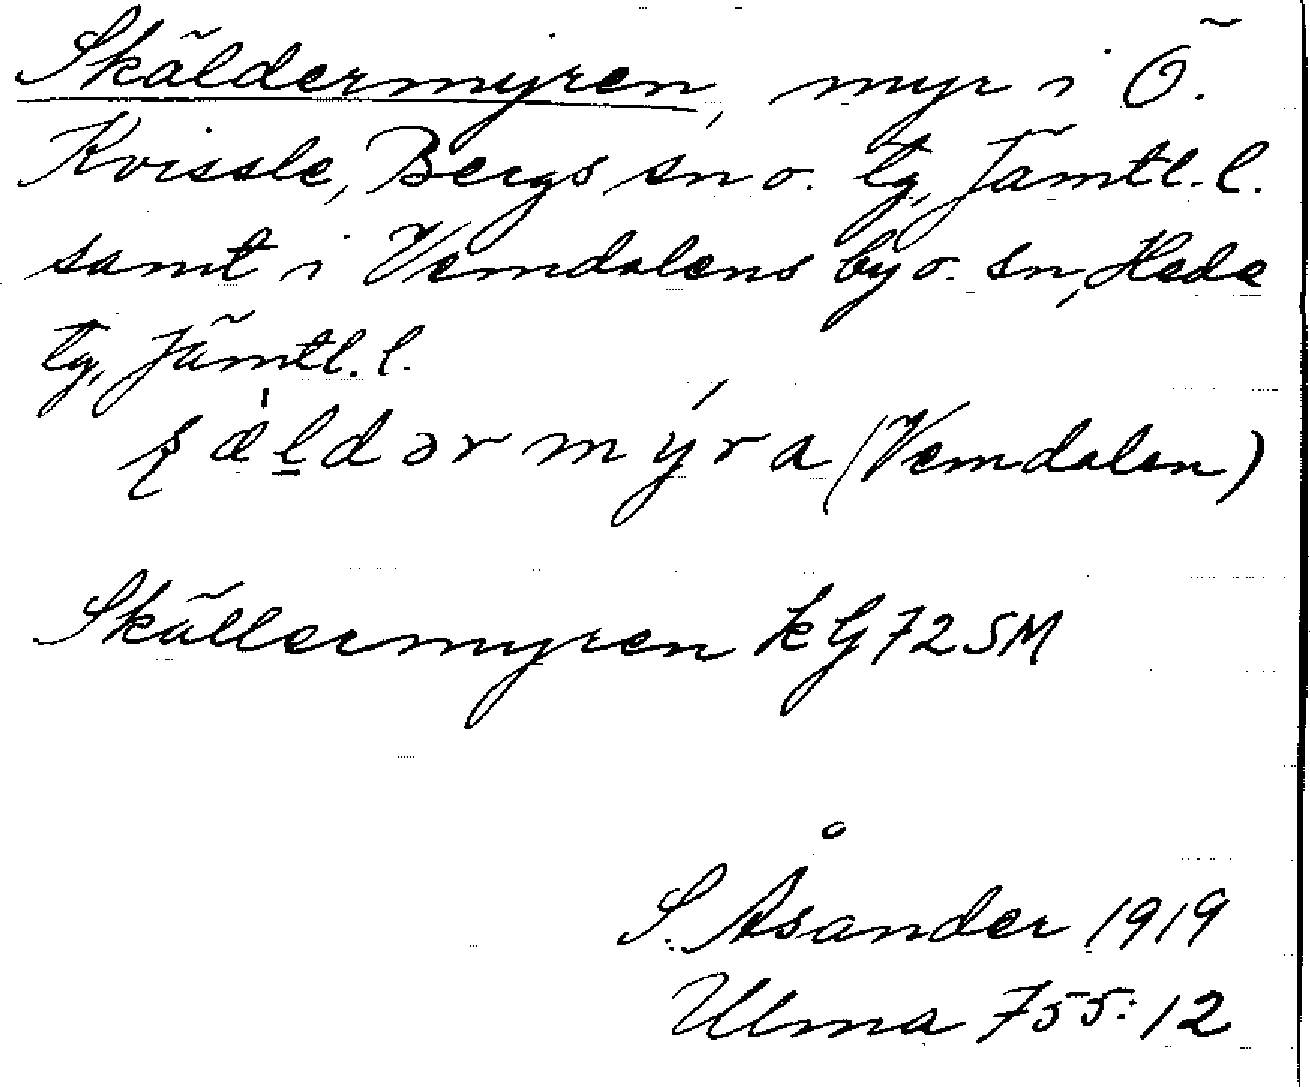 Skäldermyren, myr i Ö.
Kvissle, Bergs sn o. tg, Jämtl. l.
samt i Vemdalens by o. sn, Hede
tg, Jämtl. l.
(Vemdalen)
Skällermyren kG 72 SM
S. Åsander 1919
Ulma 755:12